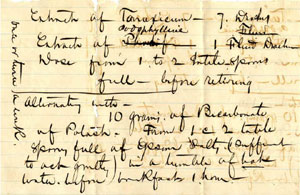 Extract of Taraxicum — 7 Drachs
Podophyllin Fluid
Extract of — 1 Fluid Drach
Dose from 1 to 2 table spoons
full — before retiring
Alternating with —
10 grains of Bicarbonate
of Potash — From 1 to 2 table
spoons full of Epsom Salts (sufficient
to act gently) in a tumbler of
water before breakfast 1 hour
once or twice a week